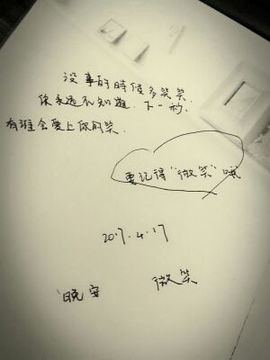 没事的時候多笑笑.
你永遠不知道.下一秒.
有誰会爱上你的笑.
要记得“微笑”哦
2017.4.17
晚安 微笑